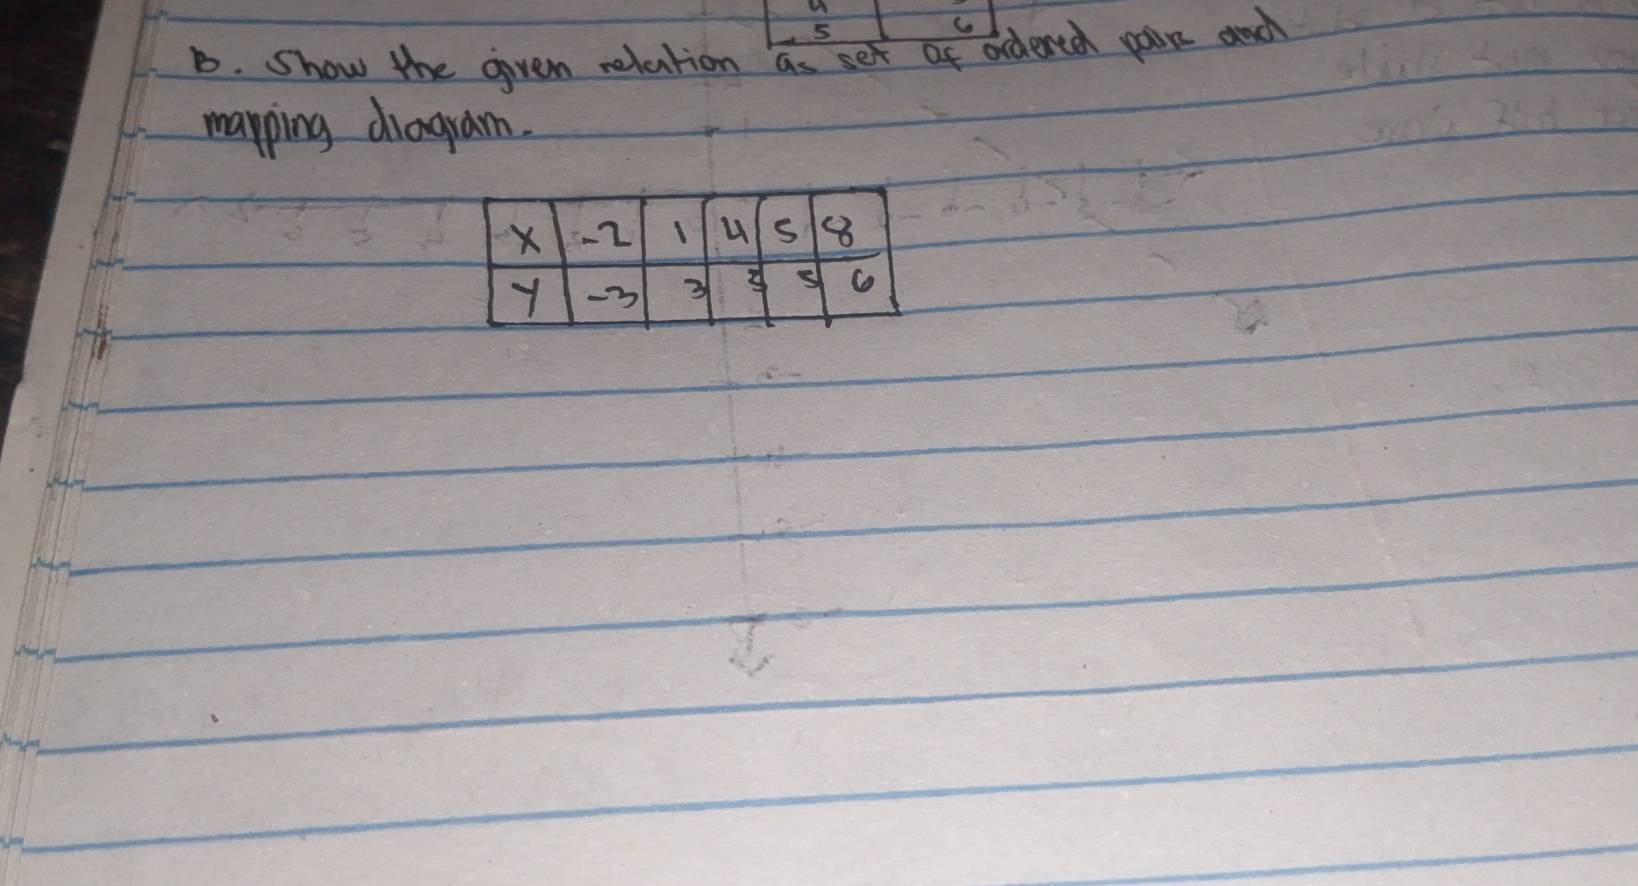 4
5 6
B. Show the given relation as set of ordered pair and
mapping diagram.
X -2 1 4 5 8
Y -3 3 3 5 6